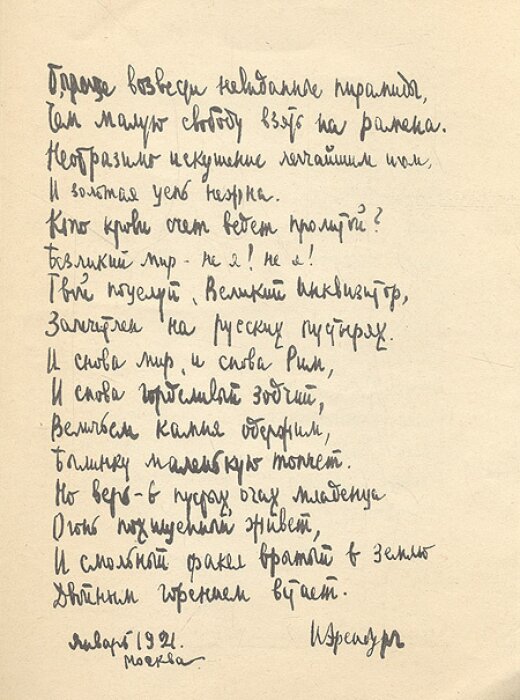 Проще возвести невиданные пирамиды,
Чем малую свободу взять на рамена.
Необразимо искушение легчайшим игом,
И золотая цепь нежна.
Кто крови счет ведет пролитой?
Безликий мир - не я! не я!
Твой поцелуй, Великий Инквизитор,
Замечен на русских пустырях.
И снова мир, и снова Рим,
И снова горделивый зодчий,
Величьем камня одержим,
Былинку маленькую топчет.
Но верь - в пустых очах младенца
Огонь похищенный живет,
И смольный факел вратый в землю
Двойным горением встает.
Январь 1921.
Москва
И Эренбург